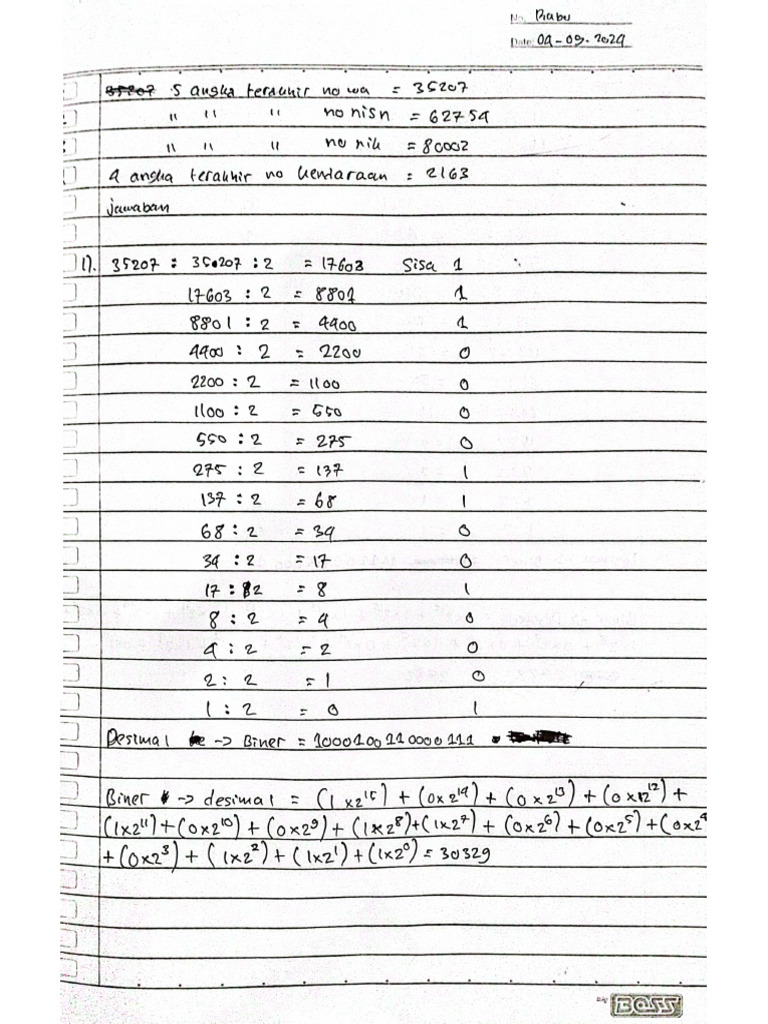 No. Rabu
Date: 04-09-2024
35207 5 angka terakhir no wa = 35207
" " " no nisn = 62754
" " " no nik = 80002
4 angka terakhir no kendaraan = 2163
jawaban
1). 35207 : 35.207 : 2 = 17603 Sisa 1
17603 : 2 = 8801 1
8801 : 2 = 4400 1
4400 : 2 = 2200 0
2200 : 2 = 1100 0
1100 : 2 = 550 0
550 : 2 = 275 0
275 : 2 = 137 1
137 : 2 = 68 1
68 : 2 = 34 0
34 : 2 = 17 0
17 : 2 = 8 1
8 : 2 = 4 0
4 : 2 = 2 0
2 : 2 = 1 0
1 : 2 = 0 1
Desimal -> Biner = 1000100110000111
Biner -> desimal = (1x2¹⁵) + (0x2¹⁴) + (0x2¹³) + (0x2¹²) +
(1x2¹¹) + (0x2¹⁰) + (0x2⁹) + (1x2⁸) + (1x2⁷) + (0x2⁶) + (0x2⁵) + (0x2⁴
+ (0x2³) + (1x2²) + (1x2¹) + (1x2⁰) = 30329
BOSS